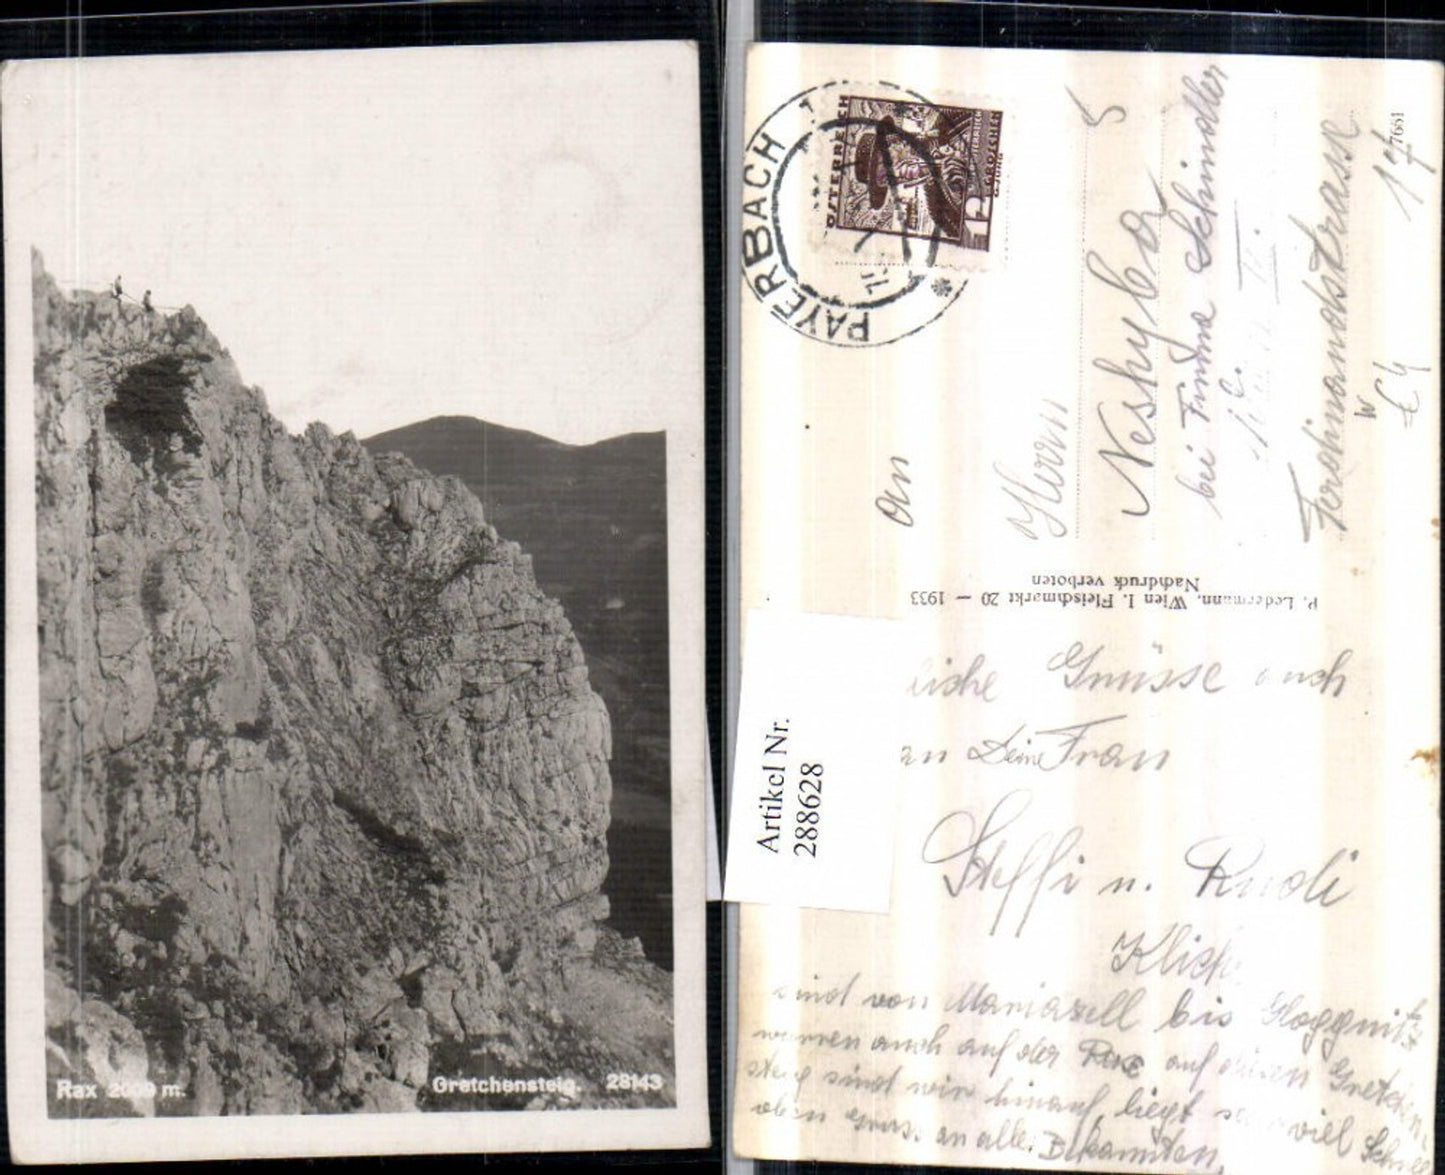 Rax 2009 m.
Gretchensteig. 28143
PAYERBACH 1
ÖSTERREICH
ÖSTERREICH
12 GROSCHEN
7661
An
Herrn
bei Firma Schindler
Ferdinandstrasse
17
P. Ledermann, Wien I. Fleischmarkt 20 — 1933
Nachdruck verboten
Artikel Nr.
288628
liche Grüsse auch
an Deine Frau
Steffi u. Rudi
sind von Mariazell bis Gloggnitz
waren auch auf der Rax auf diesen Gretchen
steig sind wir hinauf, liegt sehr viel Schnee
oben Gruss an alle Bekannten.